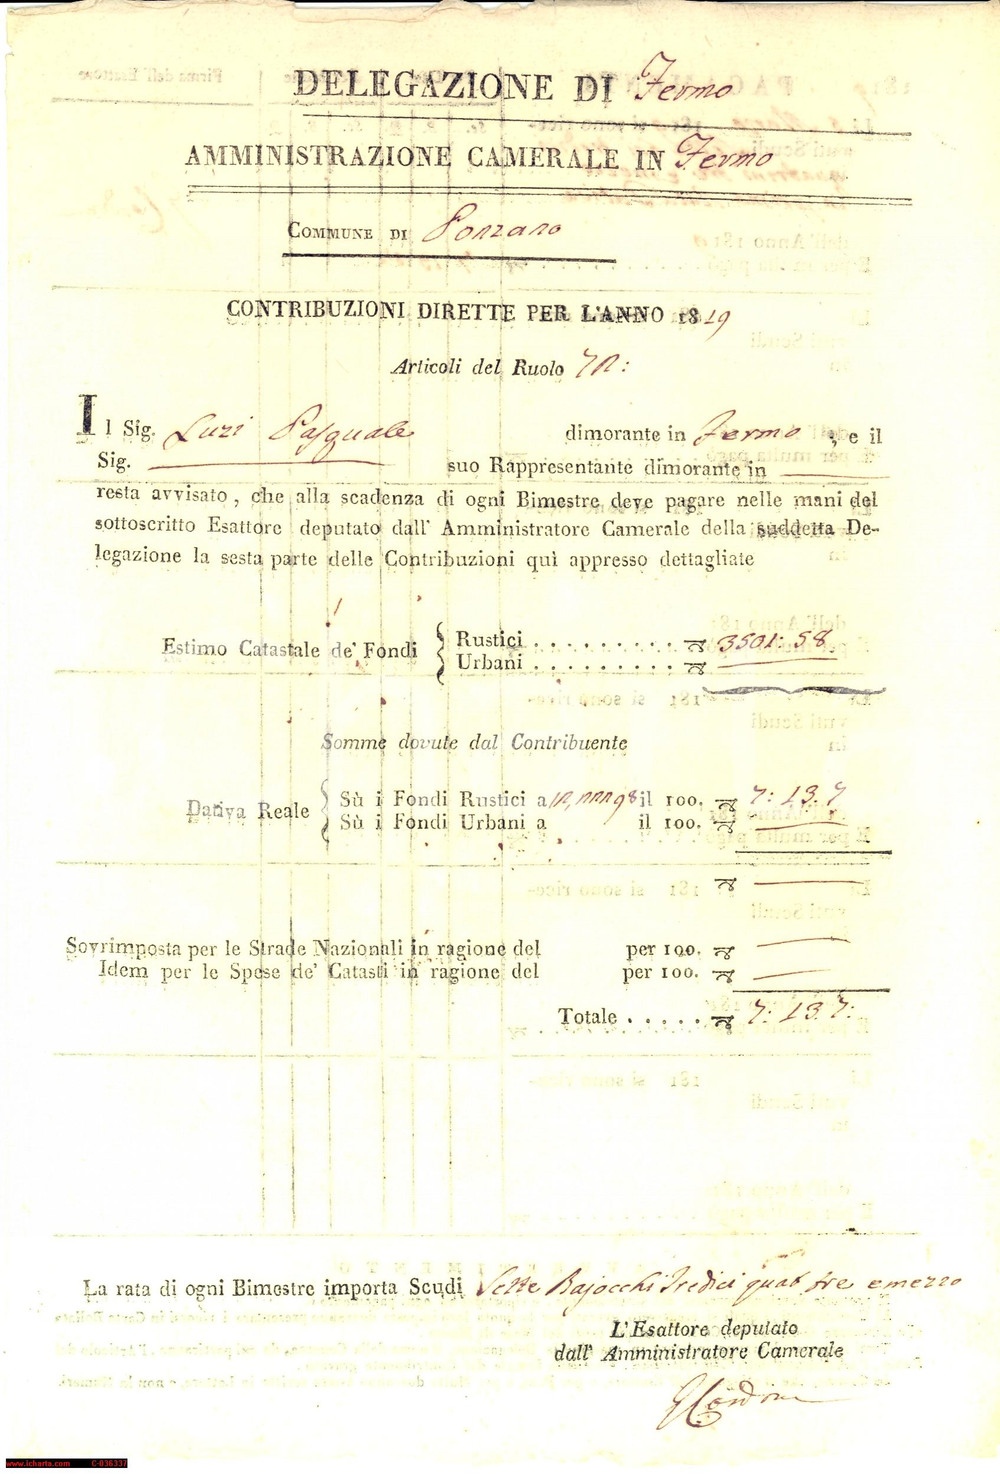 DELEGAZIONE DI Fermo
AMMINISTRAZIONE CAMERALE IN Fermo
COMMUNE DI Ponzano
CONTRIBUZIONI DIRETTE PER L'ANNO 1819
Articoli del Ruolo
Il Sig. Luzi Pasquale dimorante in Fermo , e il
Sig. suo Rappresentante dimorante in
resta avvisato , che alla scadenza di ogni Bimestre deve pagare nelle mani del
sottoscritto Esattore deputato dall' Amministratore Camerale della suddetta De-
legazione la sesta parte delle Contribuzioni quì appresso dettagliate
Estimo Catastale de' Fondi
Rustici . . . . . . . . . 3501: 58
Urbani . . . . . . . . .
Somme dovute dal Contribuente
Dativa Reale
Sù i Fondi Rustici a il 100. 7: 13. 7
Sù i Fondi Urbani a il 100.
Sovrimposta per le Strade Nazionali in ragione del per 100.
Idem per le Spese de' Catasti in ragione del per 100.
Totale . . . . . 7: 13. 7:
La rata di ogni Bimestre importa Scudi Sette Bajocchi Tredici quat. tre e mezzo
L'Esattore deputato
dall' Amministratore Camerale
www.icharta.com C-036337